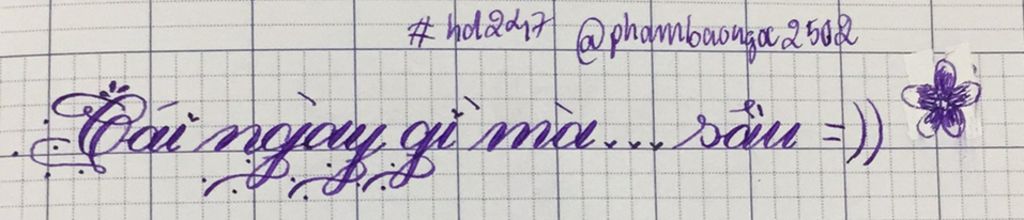 #hd247 @phambaongoc2502
Cái ngày gì mà... sầu =))